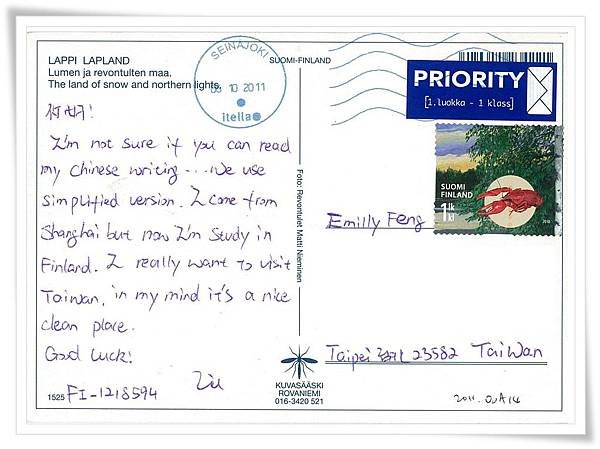 LAPPI LAPLAND
Lumen ja revontulten maa.
The land of snow and northern lights.
SUOMI-FINLAND
SEINÄJOKI
10 2011
itella
PRIORITY
[1.luokka - 1 klass]
SUOMI
FINLAND
1 lk
kl
你好!
I'm not sure if you can read
my Chinese writing... We use
simplified version. I come from
Shanghai but now I'm study in
Finland. I really want to visit
Taiwan, in my mind it's a nice
clean place.
Good luck!
Liu
1525 FI-1218594
Foto: Revontulet Matti Nieminen
KUVASÄÄSKI
ROVANIEMI
016-3420 521
Emilly Feng
Taipei 23582 Taiwan